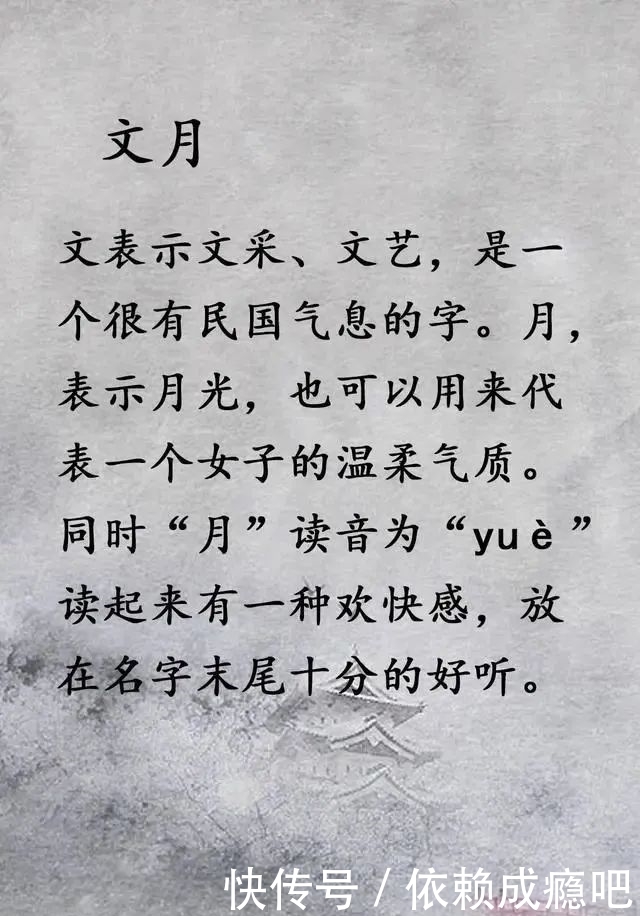 文月
文表示文采、文艺，是一
个很有民国气息的字。月，
表示月光，也可以用来代
表一个女子的温柔气质。
同时“月”读音为“yuè”
读起来有一种欢快感，放
在名字末尾十分的好听。
快传号 / 依赖成瘾吧